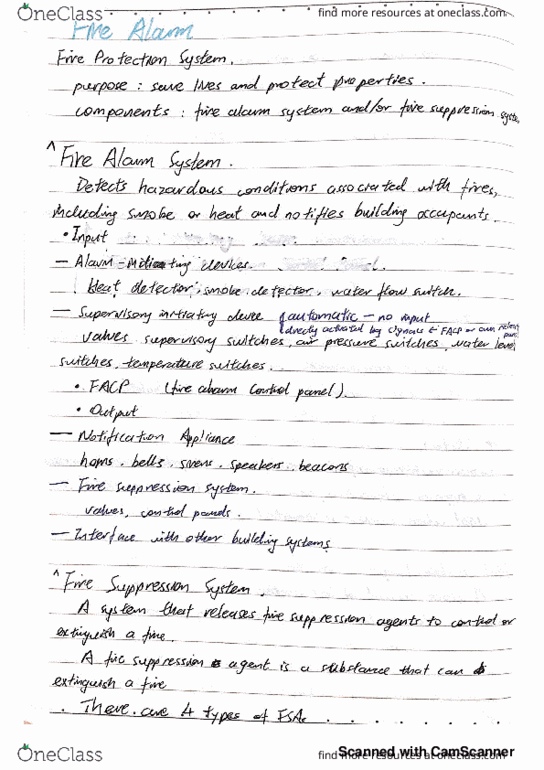 OneClass
find more resources at oneclass.com
Fire Alarm
Fire Protection System.
purpose : save lives and protect properties.
components : fire alarm system and/or fire suppression syste
^ Fire Alarm System.
Detects hazardous conditions associated with fires,
including smoke or heat and notifies building occupants.
• Input
— Alarm-initiating devices.
Heat detector, smoke detector, water flow switch.
— Supervisory initiating device { automatic – no input
(directly activated by signals to FACP or own
valves supervisory switches, air pressure switches, water level
switches, temperature switches.
• FACP (fire alarm control panel).
• Output
— Notification Appliance
horns. bells. sirens. speakers. beacons
— Fire suppression system.
valves, control panels.
— Interface with other building systems
^ Fire Suppression System.
A system that releases fire suppression agents to control or
extinguish a fire.
A fire suppression agent is a substance that can
extinguish a fire
. There are 4 types of FSA.
OneClass
find more resources at oneclass.com
Scanned with CamScanner